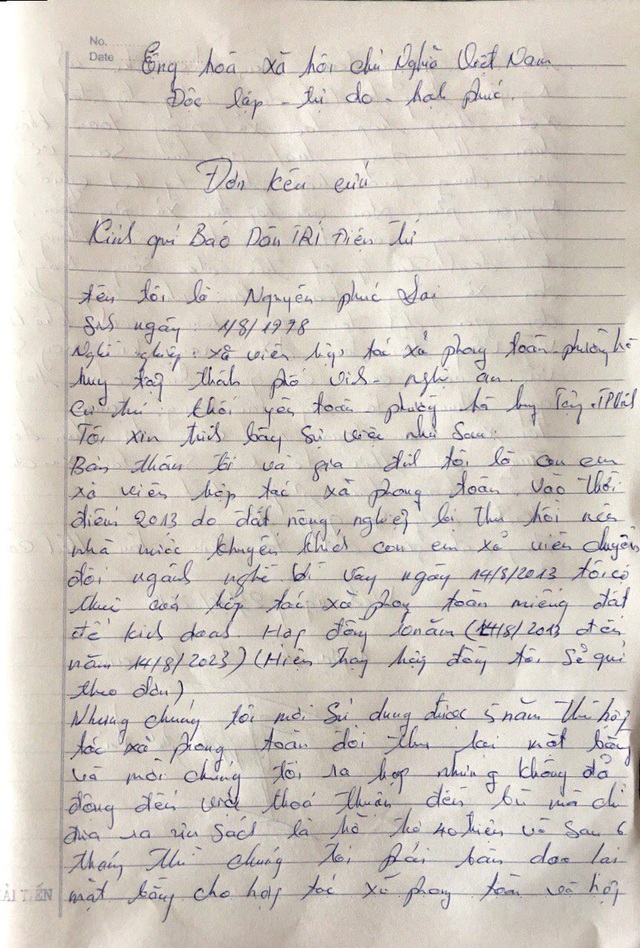 No.
Date
Cộng hoà xã hội chủ Nghĩa Việt Nam
Độc lập - tự do - hạnh phúc.
Đơn kêu cứu
Kính quí Báo Dân TRÍ Điện tử
tên tôi là Nguyễn phúc Sai
Sinh ngày: 1/8/1978
Nghề nghiệp: xã viên hợp tác xã phong toàn - phường hà
huy tập thành phố vinh - nghệ an.
Cư trú khối yên toàn phường hà huy Tập - TP Vinh
Tôi xin trình bày Sự việc như Sau:
Bản thân tôi và gia đình tôi là con em
xã viên hợp tác xã phong toàn. vào thời
điểm 2013 do đất nông nghiệp bị thu hồi nên
nhà nước khuyến khích con em xã viên chuyển
đổi ngành nghề Vì vậy ngày 14/8/2013 tôi có
thuê của hợp tác xã phong toàn miếng đất
để kinh doanh. Hợp đồng 10 năm (14/8/2013 đến
năm 14/8/2023) (Hiện hợp đồng tôi Sẽ gửi
theo đơn)
Nhưng chúng tôi mới Sử dụng được 5 năm thì hợp
tác xã phong toàn đòi thu lại mặt bằng
và mời chúng tôi ra họp nhưng không đả
động đến việc thoả thuận đền bù mà chỉ
đưa ra là hỗ trợ 40 triệu và Sau 6
tháng thì chúng tôi phải bàn giao lại
mặt bằng cho hợp tác xã phong toàn và hợp
ẢI TIẾN